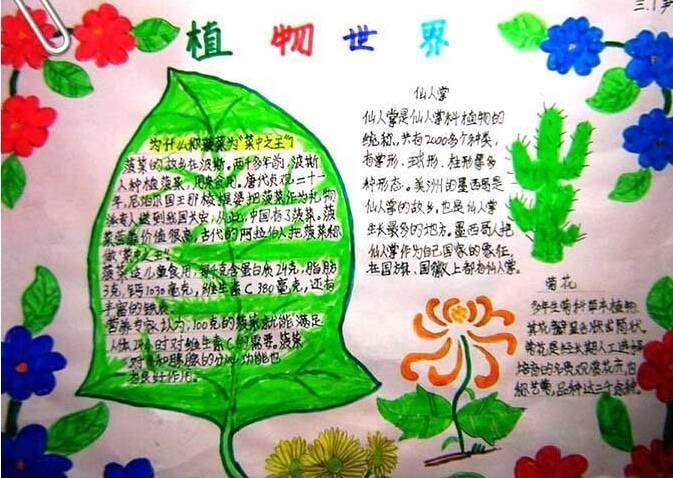 三.1
植物世界
为什么称菠菜为"菜中之王"?
菠菜的故乡在波斯。两千多年前,波斯
人种植菠菜,用来食用。唐代贞观二十一
年,尼泊尔国王那棱提婆把菠菜作为礼物
派专人送到我国长安,从此,中国有了菠菜。菠
菜营养价值很高,古代的阿拉伯人把菠菜称
做"菜中之王"。
菠菜适儿童食用,每千克含蛋白质24克,脂肪
3克,钙1030毫克,维生素C 380毫克,还有
丰富的铁质
营养专家认为,100克的菠菜就能满足
人体24小时对维生素C的需要。菠菜
对胃和胰腺的分泌功能也
有良好作用。
仙人掌
仙人掌是仙人掌科植物的
统称,共有2000多个种类,
有掌形、球形、柱形等多
种形态。美洲的墨西哥是
仙人掌的故乡,也是仙人掌
生长最多的地方。墨西哥人把
仙人掌作为自己国家的象征,
在国旗、国徽上都有仙人掌。
菊花
多年生菊科草本植物,
其花瓣呈舌状或筒状。
菊花是经长期人工选择
培育的名贵观赏花卉,也
称艺菊,品种达三千余种。